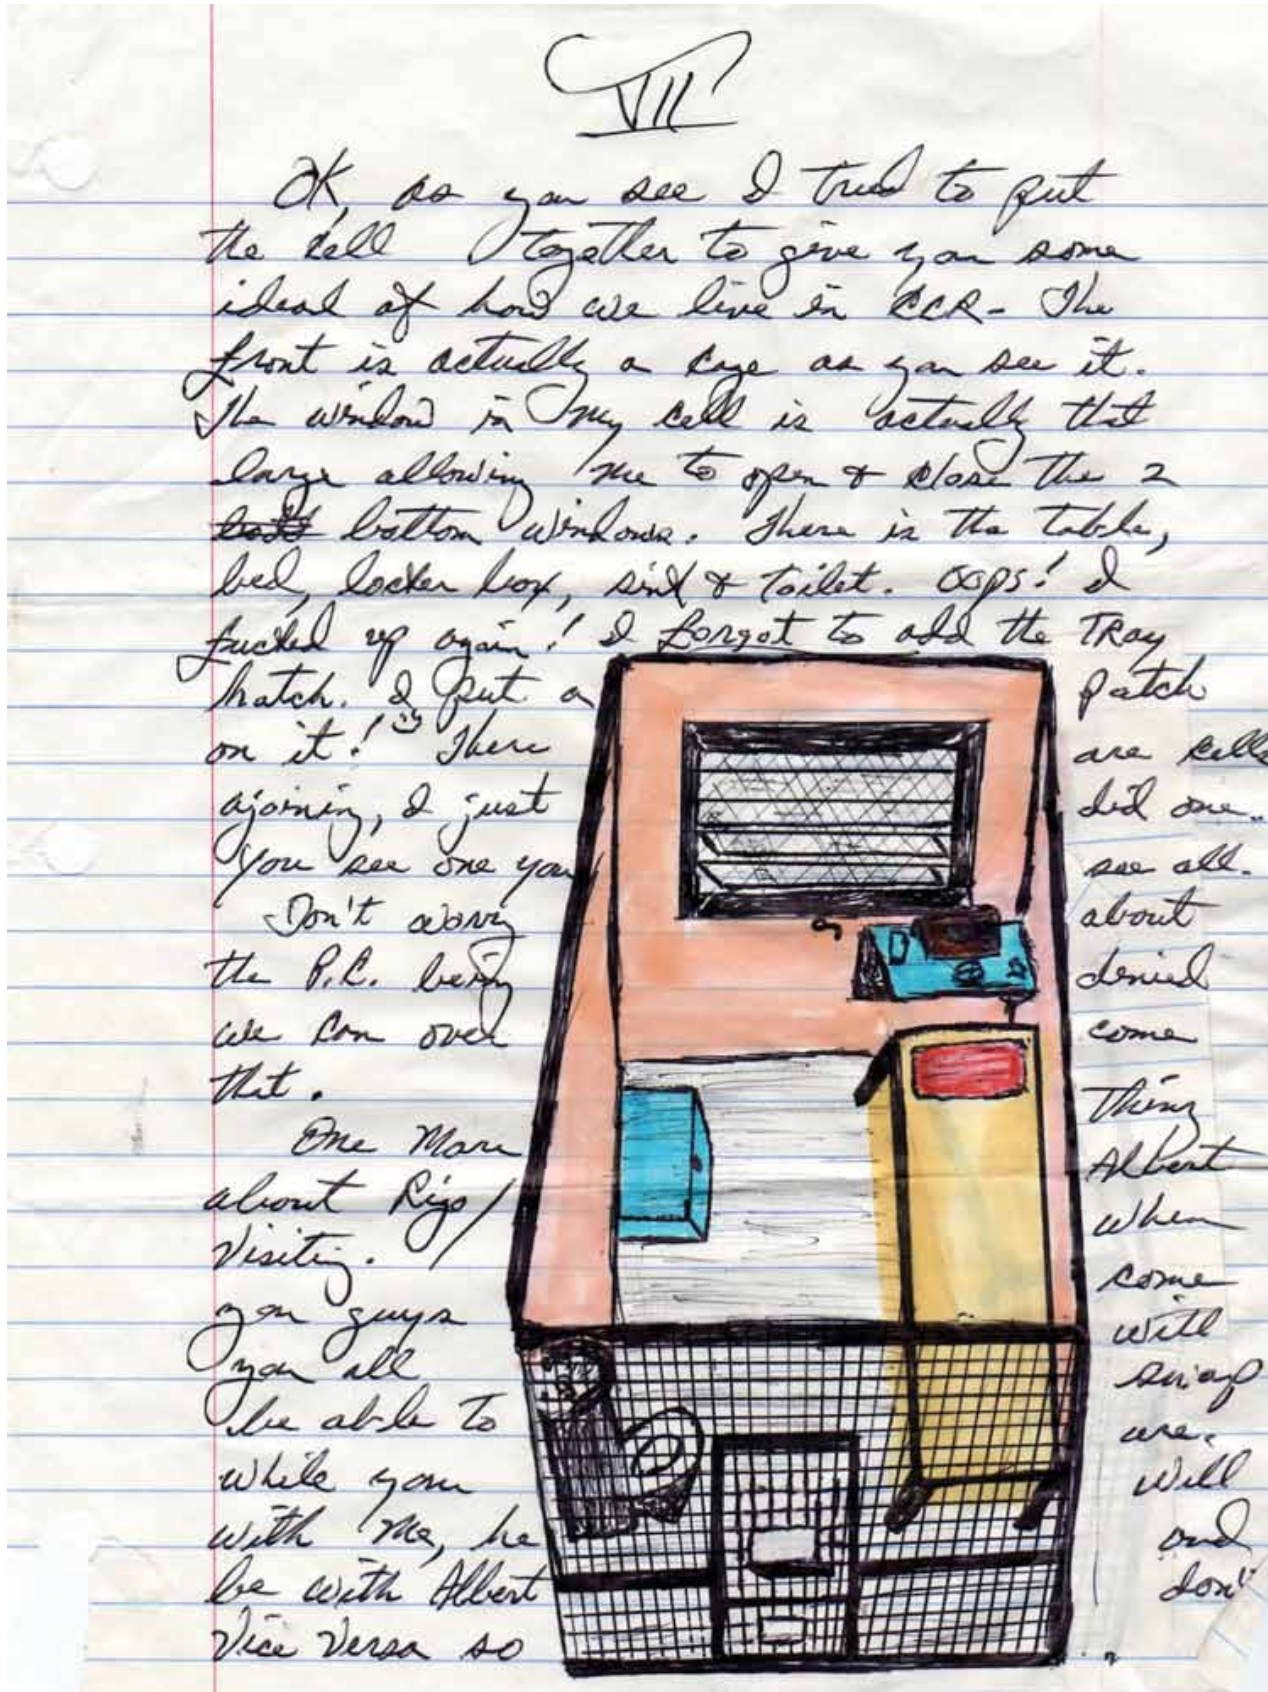 VII
OK, as you see I tried to put
the cell together to give you some
ideal of how we live in CCR- The
front is actually a cage as you see it.
The window in my cell is actually that
large allowing me to open & close the 2
bottom windows. There is the table,
bed, locker box, sink & toilet. OOPS! I
fucked up again! I forgot to add the TRay
hatch. I put a patch
on it! There are cells
ajoining, I just did one..
You see one you see all.
Don't worry about
the P.C. being denied
we can over come
that.
One More Thing
about Rigo/ Albert
Visiting. When
you guys come
you all will
be able to swap
while you are.
with me, he will
be with Albert and
Vice Versa so don't